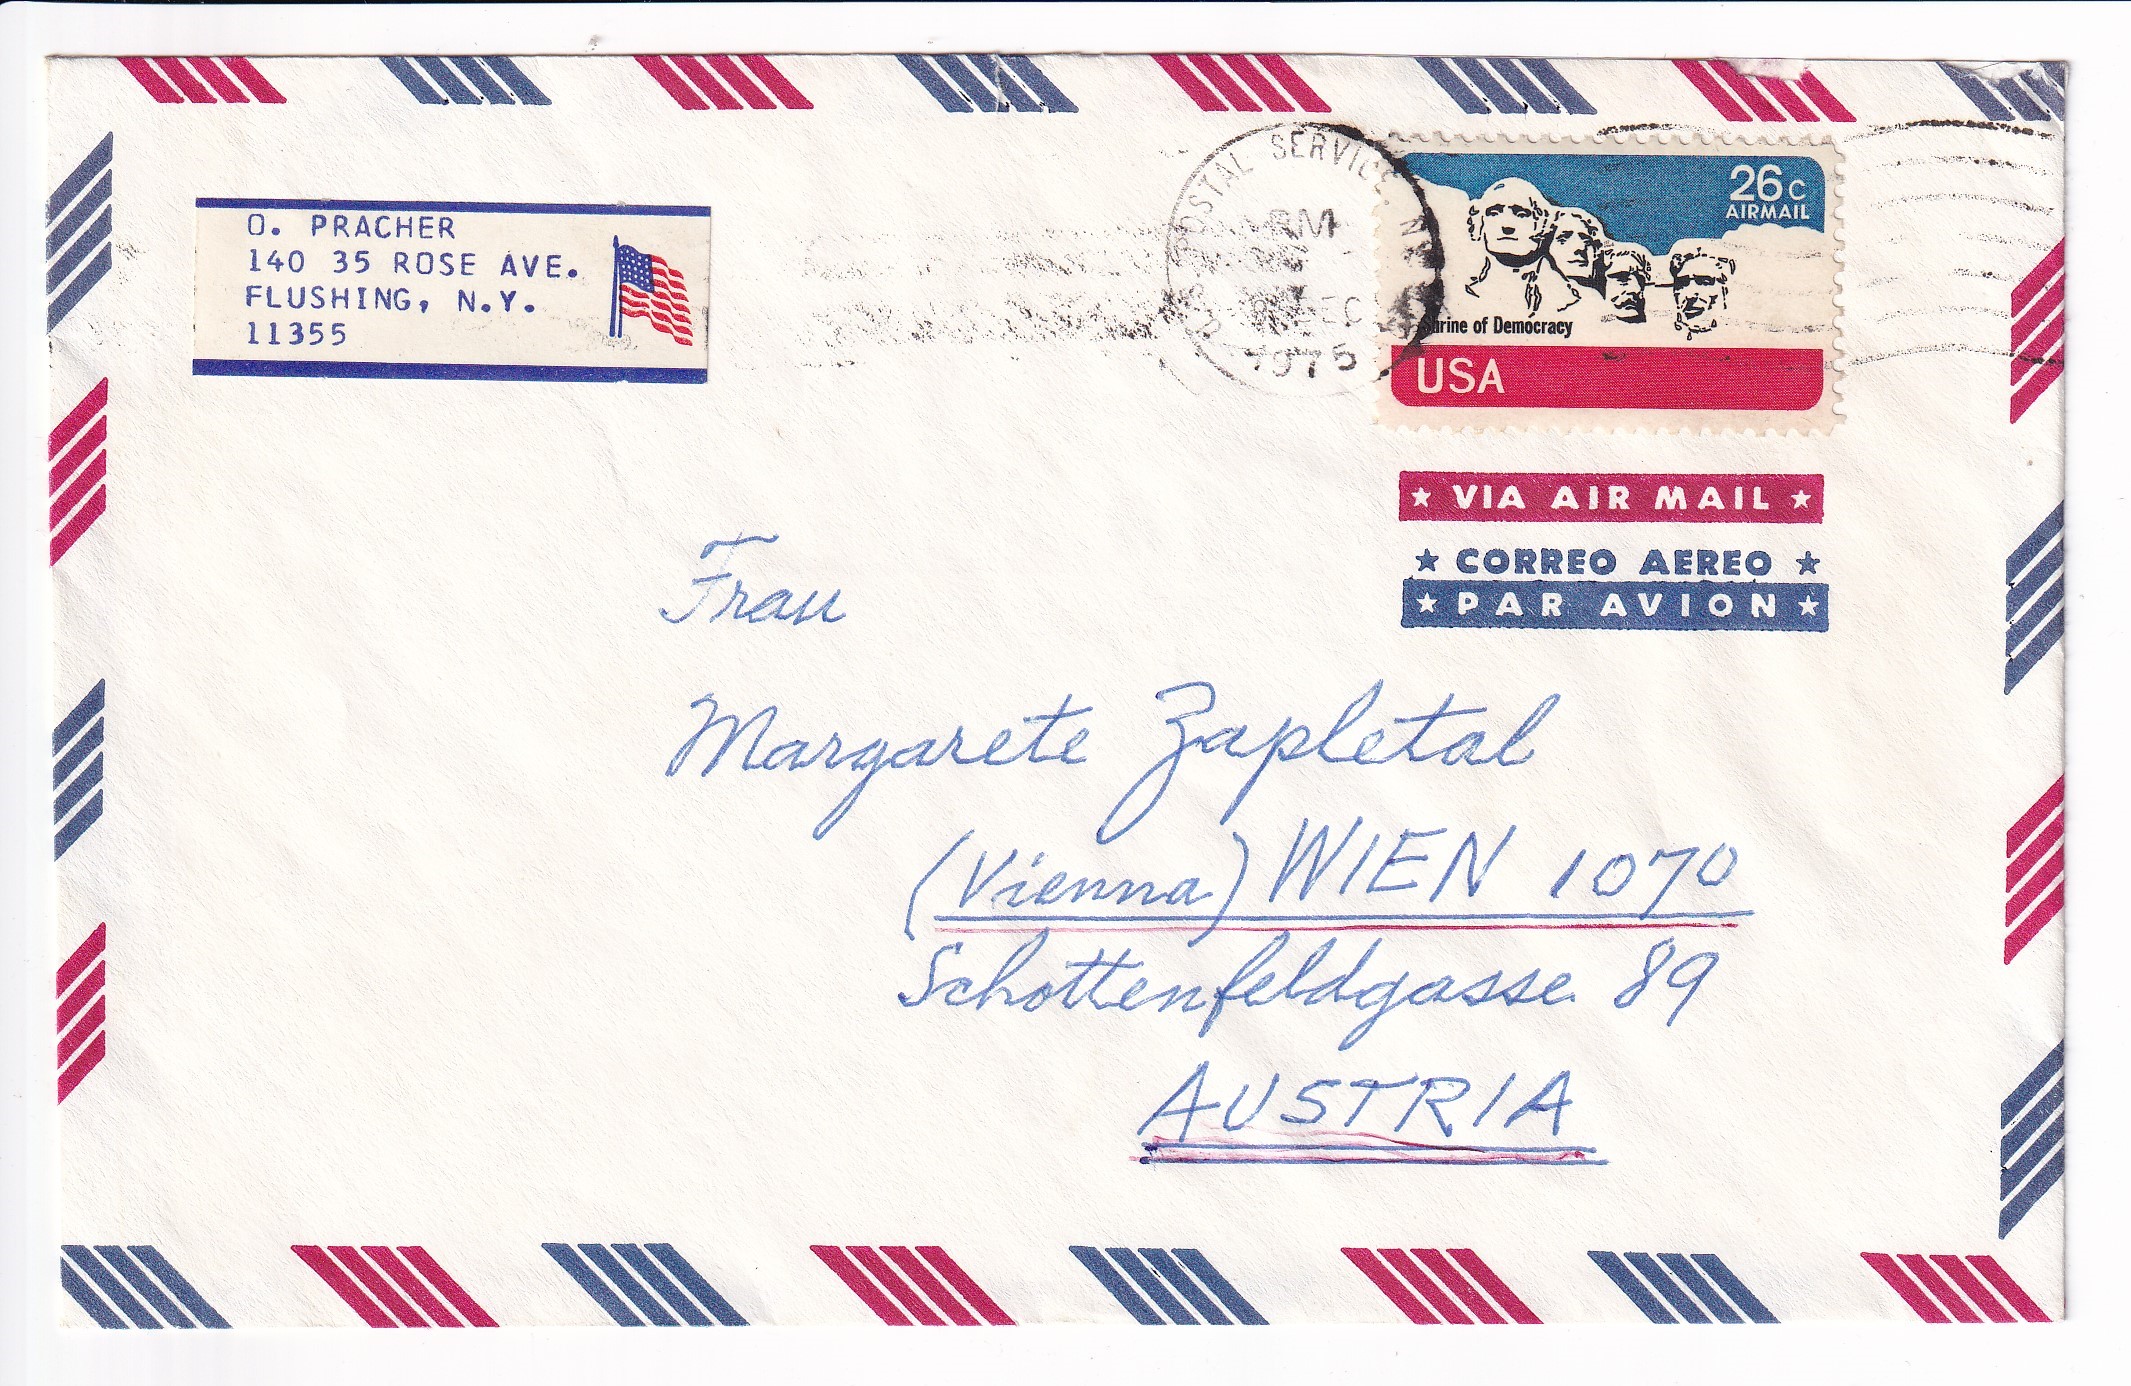 O. PRACHER
140 35 ROSE AVE.
FLUSHING, N.Y.
11355
POSTAL SERVICE
DEC
1975
26c
AIRMAIL
of Democracy
USA
★ VIA AIR MAIL ★
★ CORREO AEREO ★
★ PAR AVION ★
Frau
Margarete Zapletal
(Vienna) WIEN 1070
Schottenfeldgasse 89
AUSTRIA